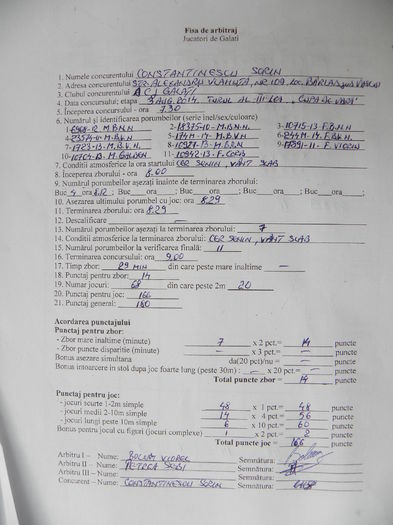 Fisa de arbitraj
Jucatori de Galati
1. Numele concurentului CONSTANTINESCU SORIN
2. Adresa concurentului STR. ALEXANDRU VLAHUTA, NR 10A, loc. BARLAD, jud VASLUI
3. Clubul concurentului ACJ GALATI
4. Data concursului; etapa 3 AUG. 2014, TURUL AL III-lea, "CUPA DE VARA"
5. Inceperea concursului - ora 7.30
6. Numărul și identificarea porumbeilor (serie inel/sex/culoare)
2-18375-10-M.B.N.N. 3-10715-13-F.B.N.H
7-1723-13-M.B.N.H.
11- 10942-13-F.
7. Conditii atmosferice la startului CER SENIN, VÂNT SLAB
8. Începerea zborului - ora 8.00
9. Numărul porumbeilor așezați înainte de terminarea zborului:
Buc 4 ora 8.12 ; Buc ora ; Buc ora ; Buc ora ; Buc ora ;
10. Asezarea ultimului porumbel cu joc: ora 8.29
11. Terminarea zborului: ora 8.29
12. Descalificare
13. Numărul porumbeilor așezați la terminarea zborului: 7
14. Conditii atmosferice la terminarea zborului: CER SENIN, VÂNT SLAB
15. Numărul porumbeilor la verificarea finală: 11
16. Terminarea concursului: ora 9.00
17. Timp zbor: 29 MIN din care peste mare inaltime —
18. Punctaj pentru zbor: 14
19. Numar jocuri: 68 din care peste 2m 20
20. Punctaj pentru joc: 166
21. Punctaj general: 180
Acordarea punctajului
Punctaj pentru zbor:
- Zbor mare inaltime (minute) 7 x 2 pct.= 14 puncte
- Zbor puncte disparitie (minute) — x 3 pct.= — puncte
Bonus asezare simultana da(20 pct)/nu = — puncte
Bonus intoarcere in stol dupa joc foarte lung (peste 30m) : — x 20 pct.= — puncte
Total puncte zbor = 14 puncte
Punctaj pentru joc:
- jocuri scurte 1-2m simple 48 x 1 pct.= 48 puncte
- jocuri medii 2-10m simple 14 x 4 pct.= 56 puncte
- jocuri lungi peste 10m simple 6 x 10 pct.= 60 puncte
Bonus pentru jocul cu figuri (jocuri complexe) 1 x 2 pct.= 2 puncte
Total puncte joc = 166 puncte
Arbitru I – Nume: VIOREL Semnătura:
Arbitru II – Nume: Semnătura:
Arbitru III – Nume: Semnătura:
Concurent – Nume: CONSTANTINESCU SORIN Semnătura: